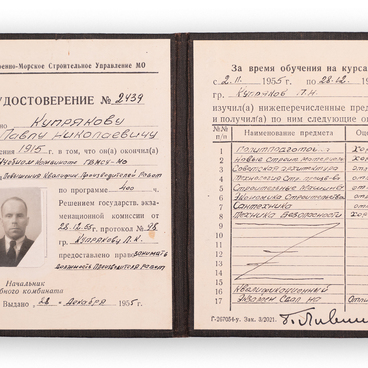 енно-Морское Строительное Управление МО
УДОСТОВЕРЕНИЕ № 2439
но Купрякову
Павлу Николаевичу
ения 1915 г. в том, что он(а) окончил(а)
Учебном Комбинате
повышения Квалифик. Производителей Работ
по программе 400 ч.
Решением государств. экза-
менационной комиссии от
28.12.55 г. протокол № 48
гр. Купрякову П.Н.
предоставлено право занимать
должность Производителя работ
Начальник
бного комбината
Выдано „28" декабря 1955 г.
За время обучения на курса
с 2.11. 1955 г. по 28.12. 19
гр. Купряков П.Н.
изучил(а) нижеперечисленные пред
и получил(а) по ним следующие оц
№№ п/п Наименование предмета Оце
1 Политподготов. Хор
2 Новые Строит. материал.
3 Советская архитектура
4 Технология Стр. произв-ва
5 Строительные машины
6 Экономика Строительства
7 Сантехника
8 Техника Безопасности Хор
9
10
11
12
13
14
15
16 Квалификационный
17 Экзамен Сдал на Отли
Г-267054-у. Зак. 3/2021.